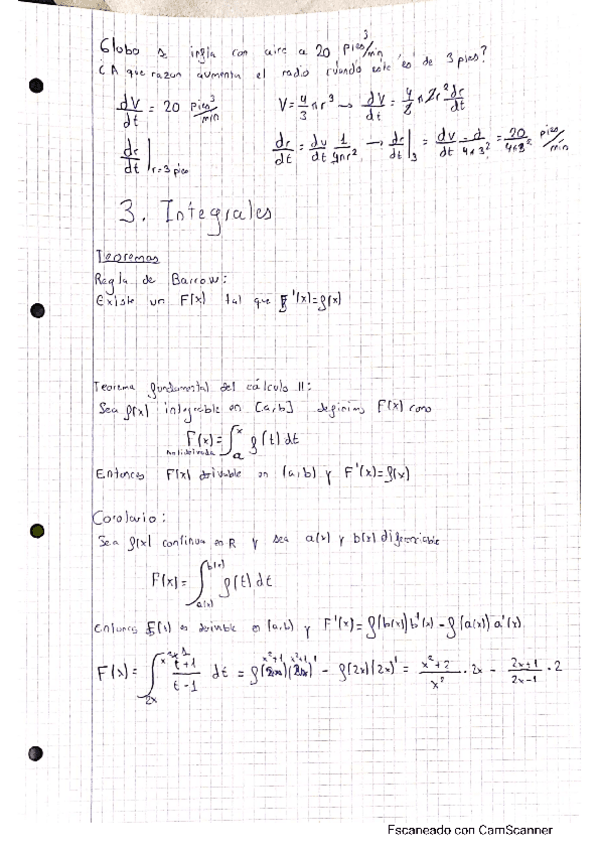 Globo se infla con aire a 20 pies³/min
¿A que razon aumenta el radio cuando este es de 3 pies?
dV/dt = 20 pies³/min V = 4/3 πr³ → dV/dt = 4/3 π 3r² dr/dt
dr/dt |r=3 pies dr/dt = dV/dt 1/4πr² → dr/dt |3 = dV/dt
3. Integrales
Teoremas
Regla de Barrow:
Existe un F(x) tal que F'(x)=f(x)
Teorema fundamental del cálculo II:
Sea f(x) integrable en [a,b] definimos F(x) como
F(x) = ∫ₐˣ f(t) dt
Entonces F(x) derivable en (a,b) y F'(x)=f(x)
Corolario:
Sea f(x) continua en R y sea a(x) y b(x) diferenciable
F(x) = ∫_{a(x)}^{b(x)} f(t) dt
Entonces F(x) es derivable en (a,b) y F'(x) = f(b(x)) b'(x) - f(a(x)) a'(x)
F(x) = ∫_{2x}^{x²+1} t+1/t-1 dt = f(x²+1)(x²+1)' - f(2x)(2x)' = x²+2/x² · 2x - 2x+1/2x-1 · 2
Escaneado con CamScanner